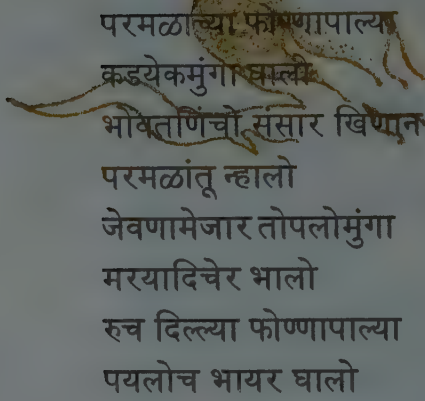 परमळाच्या फोण्णापाल्या
कडयेकमुंगा घाली
भोंवतणिंचो संसार खिणान
परमळांतू न्हालो
जेवणामेजार तोपलोमुंगा
मरयादिचेर भालो
रुच दिल्ल्या फोण्णापाल्या
पयलोच भायर घालो